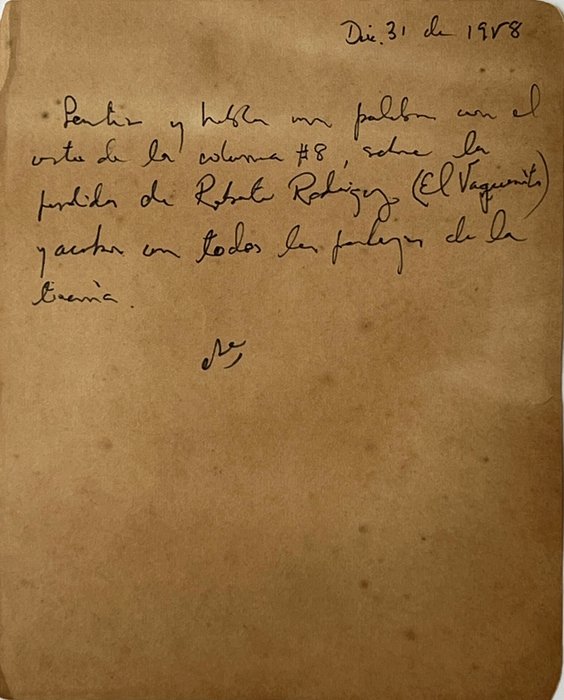 Dic. 31 de 1958
Sentir y hablar una palabra con el
resto de la columna #8, sobre la
perdida de Roberto Rodríguez (El Vaquerito)
y acabar con todos los de la
tiranía.
Che